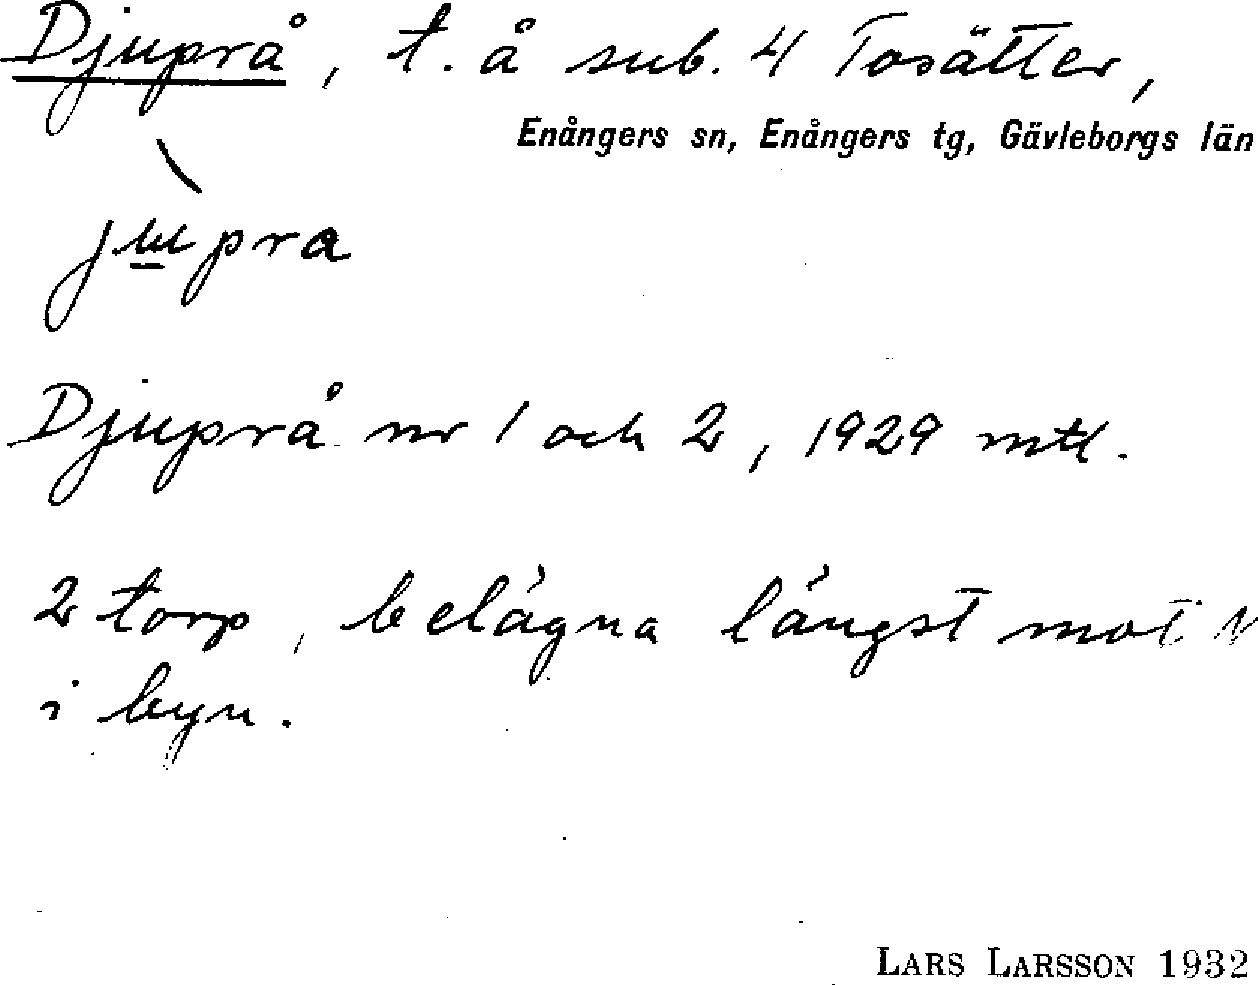 Djuprå, t. å sub. 4 Tosätter,
Enångers sn, Enångers tg, Gävleborgs län
jupra
Djuprå nr 1 och 2, 1929 mtl.
2 torp, belägna längst mot
i byn.
LARS LARSSON 1932